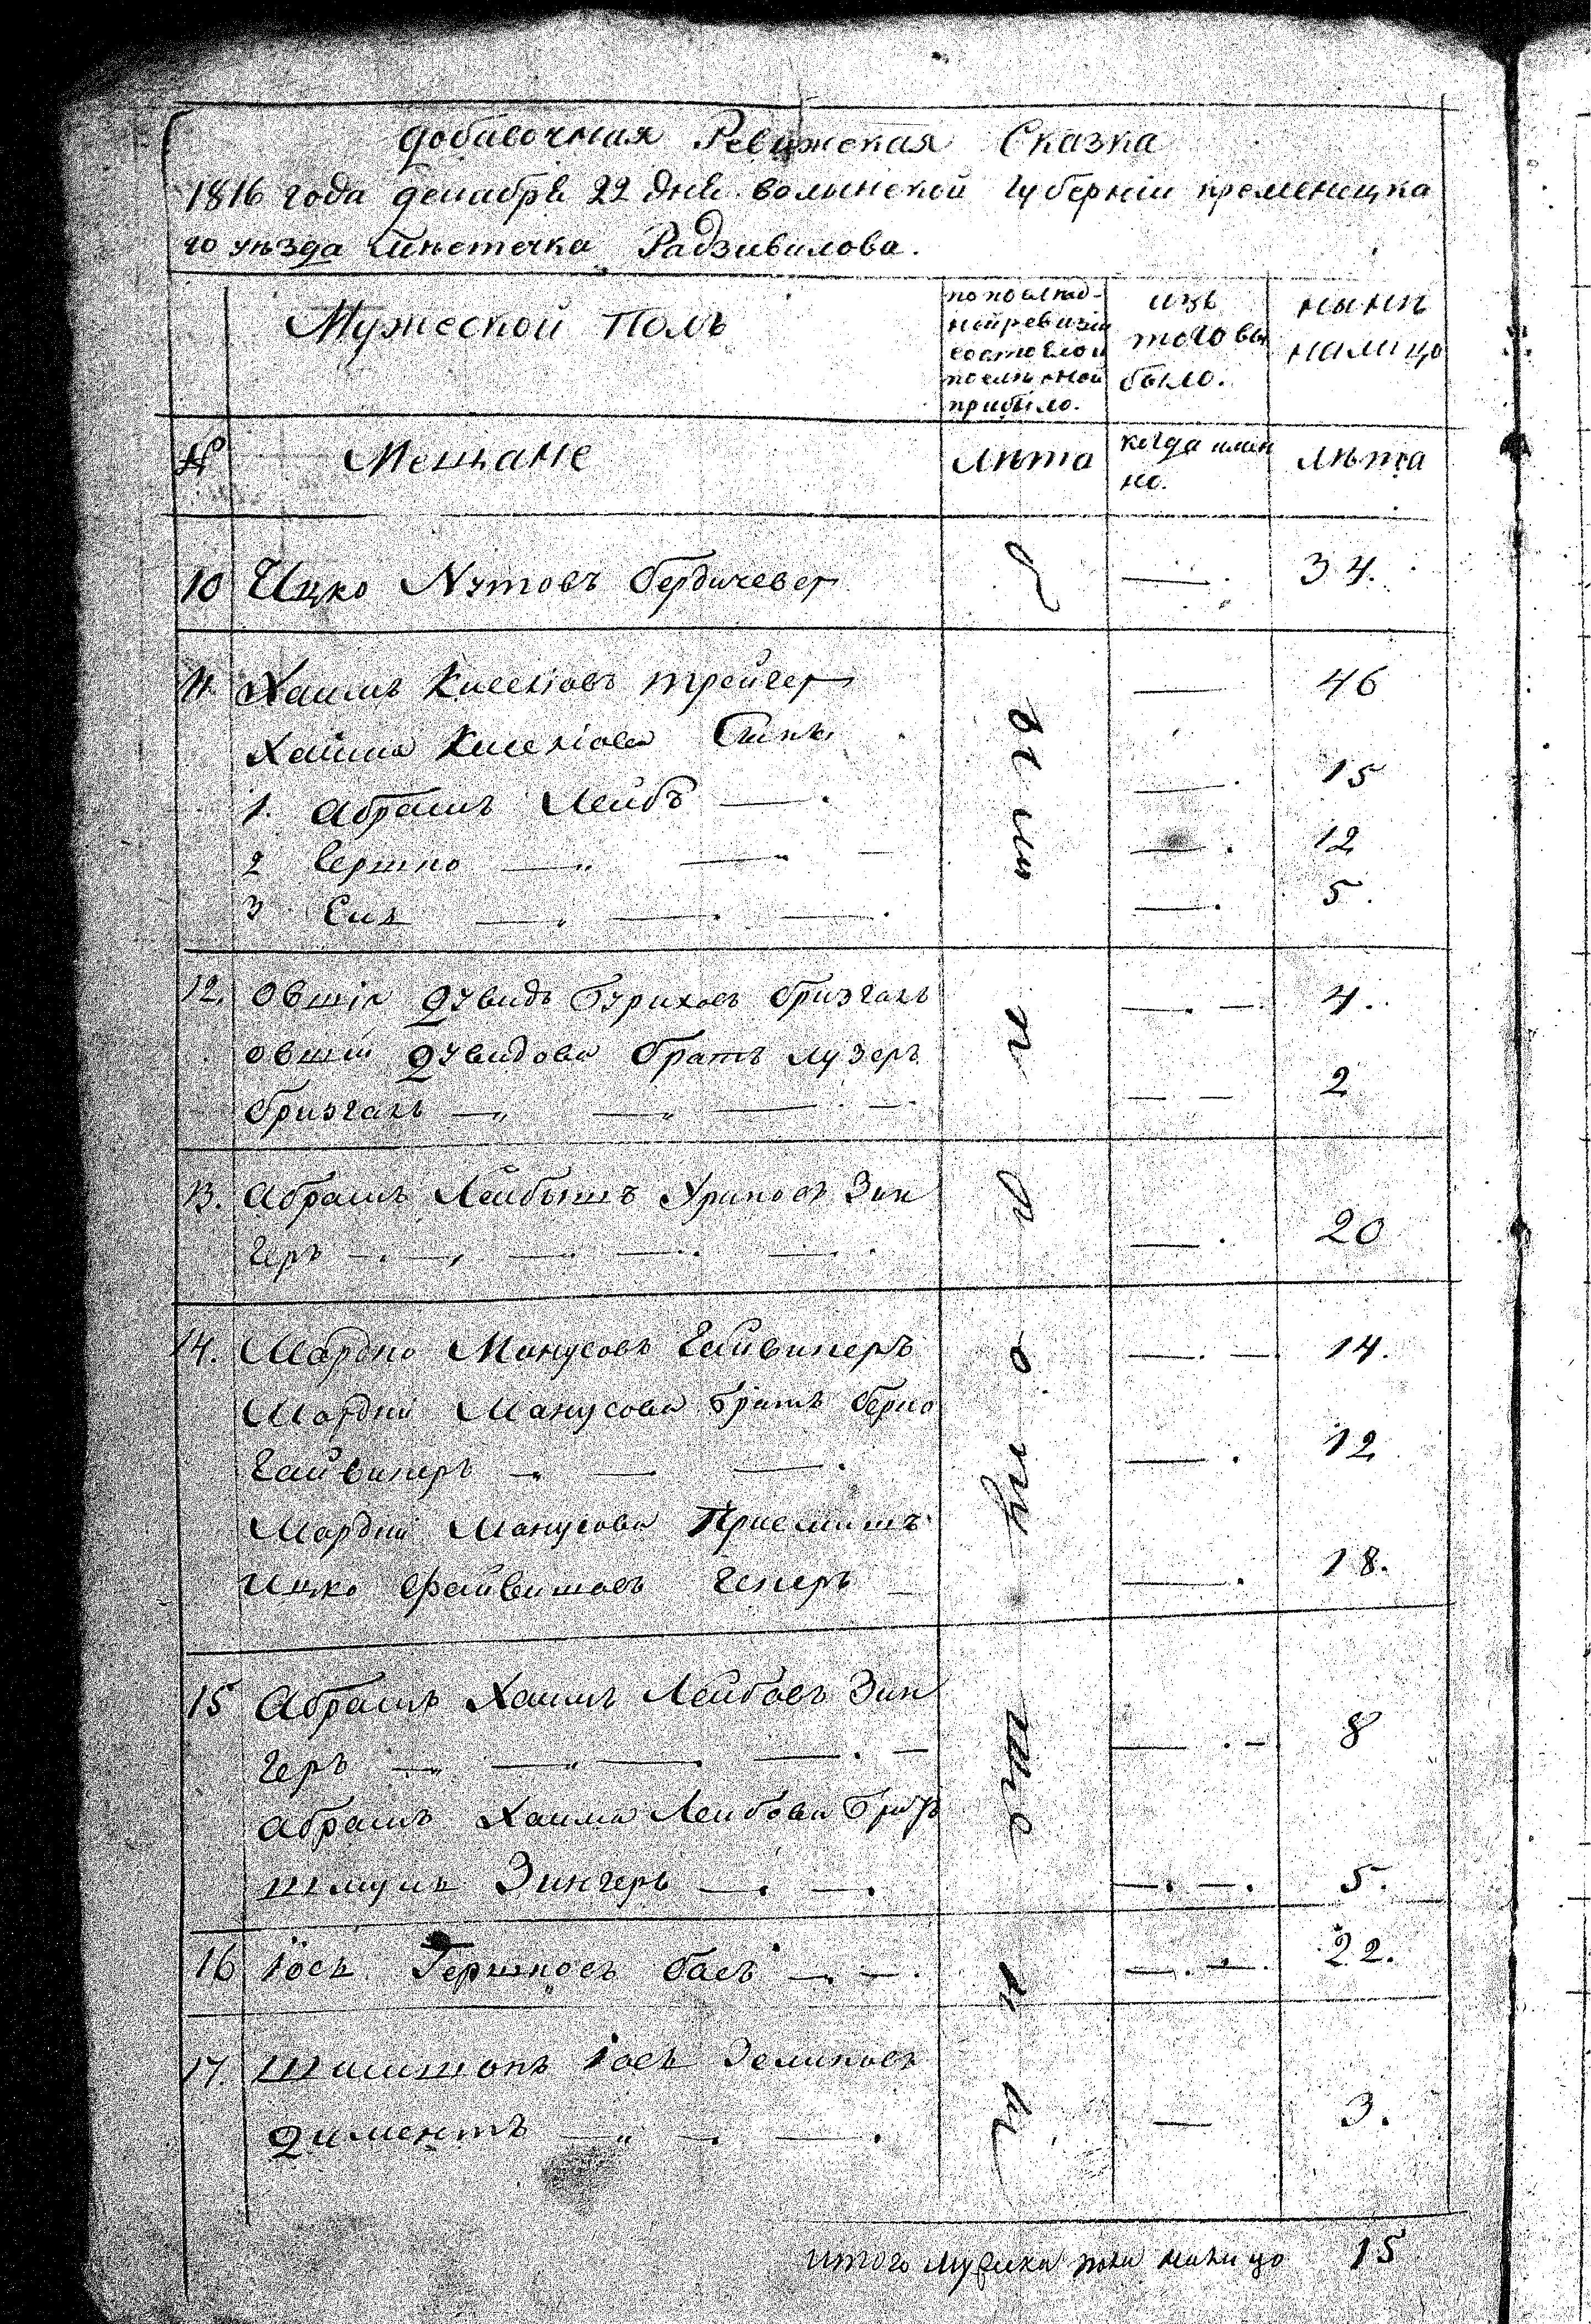 Добавочная Ревижская Сказка
1816 года декабря 22 дня волынской губерніи кременецка
го уѣзда мѣстечка Радзивилова.
Мужеской Полъ
по послѣд-
ней ревизіи
состояло и
после оной
прибыло.
изъ
того вы
было.
нынѣ
налицо
№
Мещане
лѣта
когда имян
но.
лѣта
10 Ицко Нутовъ Бердичевер — 34.
11. Хаимъ Киселіовъ трейгер — 46
Хаима Киселіова Сынъ
1. Абрамъ Лейбъ — 15
2 Гершко — 12
3 Сих — 5.
12. Овшій Дувидъ Бурихов Бризгалъ — 4.
Овшія Дувидова братъ лузеръ
Бризгалъ — 2
13. Абрамъ Лейбышъ Уриновъ Зин
геръ — 20
14. Мордко Манусовъ Гайвинеръ — 14.
Мордки Манусова братъ берко
Гайвинеръ — 12
Мордки Манусова Приемышъ
Ицко Файвишовъ — 18.
15 Абрамъ Хаимъ Лейбовъ Зин
геръ — 8
Абрамъ Хаима Лейбова братъ
шмуль Зингеръ — 5.
16 Іось Гершковъ басъ — 22.
17. Шимшонъ Іось Зеликовъ
Диментъ — 3.
итого мужска пола налицо 15